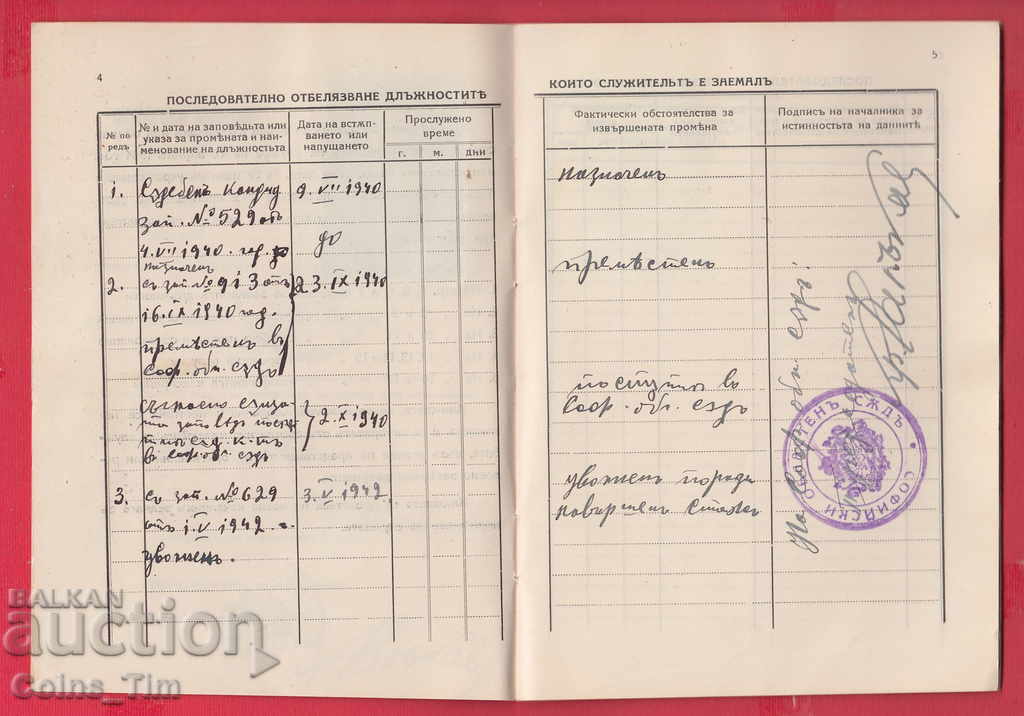 4
ПОСЛЕДОВАТЕЛНО ОТБЕЛЯЗВАНЕ ДЛЪЖНОСТИТѢ
№ по редъ
№ и дата на заповѣдьта или
указа за промѣната и наи-
менование на длъжностьта
Дата на встѫп-
ването или
напущането
Прослужено
време
г. м. дни
1. Сѫдебенъ Кандид 9. VII 1940
зап. № 529 отъ
4. VII 1940. год. до
назначенъ
2. съ зап. № 913 отъ 23. IX 1940
16. IX 1940 год.
премѣстенъ въ
Соф. обл. сѫдъ
съгласно
2. X 1940
въ Соф. обл. сѫдъ
3. съ зап. № 629 3. V 1942
отъ 1. V 1942 г.
уволненъ.
5
КОИТО СЛУЖИТЕЛЬТЪ Е ЗАЕМАЛЪ
Фактически обстоятелства за
извършената промѣна
Подписъ на началника за
истинностьта на данните
назначенъ
премѣстенъ
постѫпи въ
Соф. обл. сѫдъ
уволненъ поради
навършенъ стажъ
СОФИЙСКИ СѪДЪ
BALKAN
auction
Coins_Tim